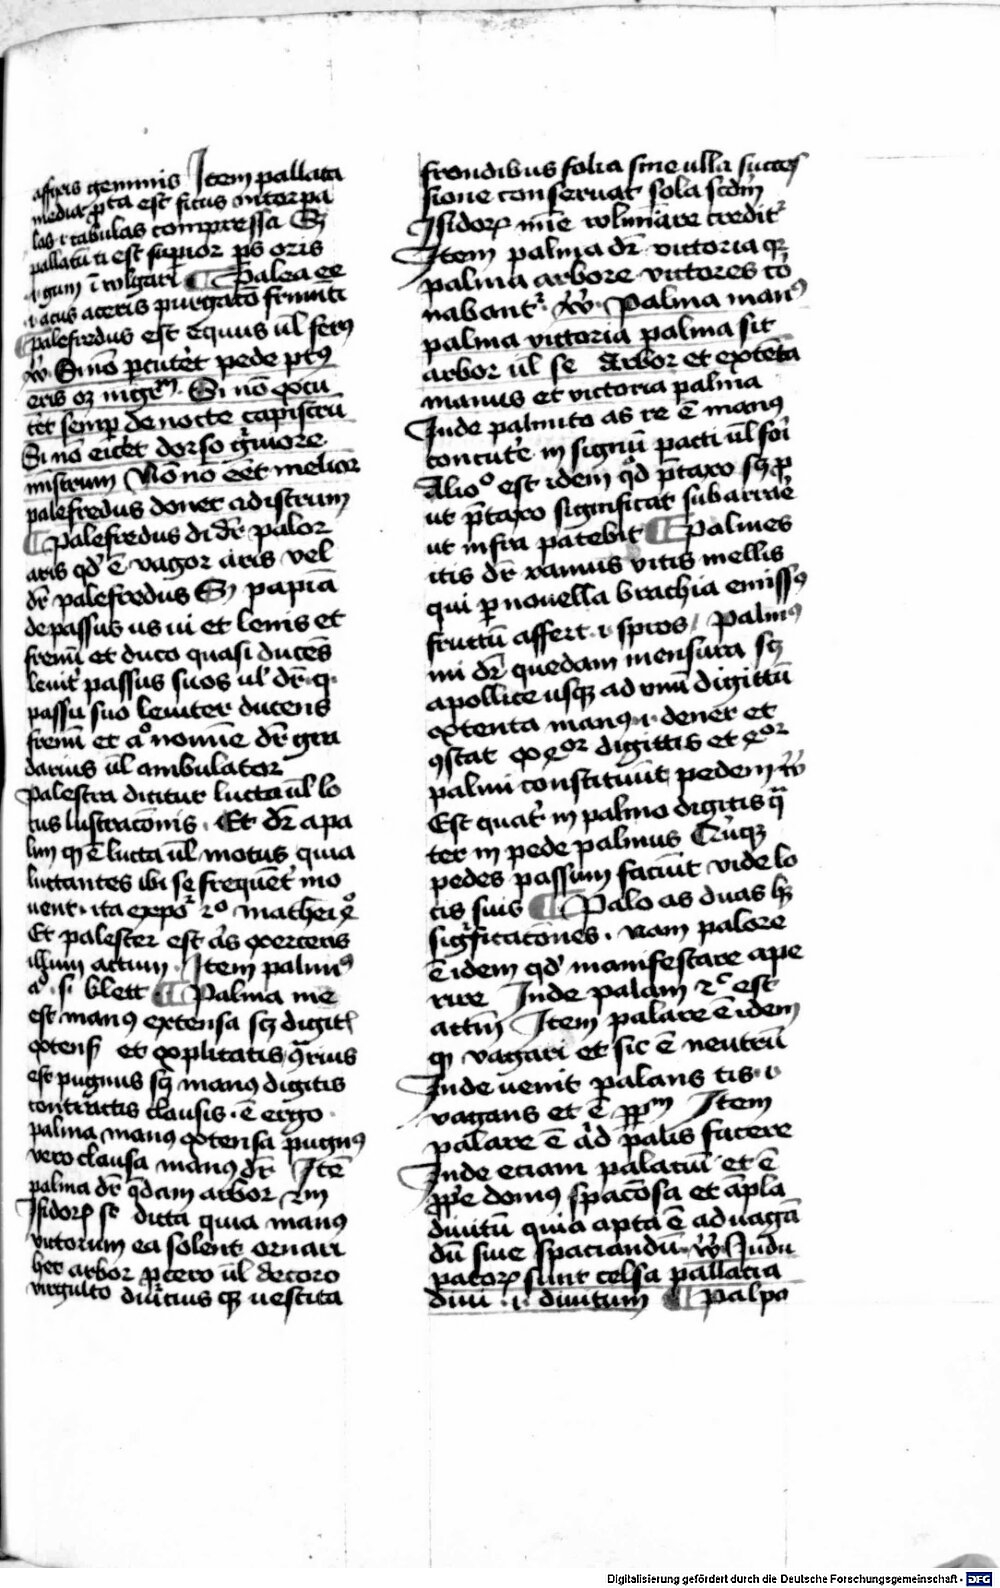 affixis gemmis Item pallata
mediax pta est situs intorpa
las ⁊ tabulas compressa Sz
pallatū ti est supior ps oris
.i. gum ī vulgari ¶ Palea ee
.i. acus aceris purgatō frumēti
¶ palefredus est equus ul ferꝰ
vꝰ Si nō pcutēt pede ptꝰ
eris oz nigrm. Si nō excu
tēt semp de nocte capistrū
Si nō eicēt dorso gͣuiore
mistrum Nō nō eēt melior
palefredus donec adistrum
¶ Palefredus di dr palor
aris qd ē vagor aris vel
dr palefredus Sz papiā
de passus us ui et lenis et
frenū et duco quasi ducēs
leuit passus suos ul dr. q.
passu suo leuiter ducens
frenū et aº nomīe dr gra
darius ul ambulator
palestra dicitur lucta ul lo
cus lustracōnis. Et dr a pa
lin qz ē lucta ul motus quia
luctantes ibi se frequēt mo
uent. ita expoᵗ 2º mathei xº
Et palester est aīs exercens
illum actum. Item palmꝰ
aº. si blect ¶ Palma me
est manꝰ extensa scz digitꝭ
extensꝭ et explicatis 9rius
est pugnus sz manꝰ digitis
contractis clausis. ē ergo
palma manꝰ extensa pugnꝰ
vero clausa manꝰ dr Itē
palma dr qdam arbor 2m
Isidorꝝ sr dicta quia manꝰ
victorum ea solent ornari
hec arbor pcero ul decoro
virgulto diutius qz uestita
frondibus folia sine ulla succes
sione conseruat sola scdm
Isidorꝝ mīe volmināre creditᵗ
Item palma dr victoria qz
palma arbore victores cō
nabantᵗ. vꝰ. Palma manꝰ
palma victoria palma sit
arbor ul se Arbor et extēta
manus et victoria palma
Inde palmito as re ē manꝰ
concutē in signū pacti ul foī
Alioº est idem qd ptaxo sz p
ut ptaxo significat subarrāē
ut infra patebit ¶ Palmes
itis dr ramus vitis mellis
qui p nouella brachia emissꝰ
fructū affert .i. spros / Palmꝰ
mi dr quedam mensura scz
a pollice usqz ad vnū digittū
extenta manꝰ .i. denēt et
9stat ex xor digittis et xor
palmi constituūt pedem vꝰ
Est quatᵗ in palmo digitis qͣ
ter in pede palmus Quīqz
pedes passum faciūt vide lo
cis suis ¶ Palo as duas hz
sigͥficacōnes. nam palore
ē idem qd manifestare ape
rire Inde palam 2º est
actm Item palare ē idem
qz vagari et sic ē neutrū
Inde uenit palans tis .i.
vagans et ē ppm Item
palare ē aͥd palis facere
Inde eciam palatiū et ē
ppe domꝰ spacōsa et āpla
diuitū quia apta ē ad uagā
dū siue spaciandū. vꝰ. Indu
patorꝝ sunt celsa pallacia
diui .i. diuitum ¶ Palpo
Digitalisierung gefördert durch die Deutsche Forschungsgemeinschaft - DFG